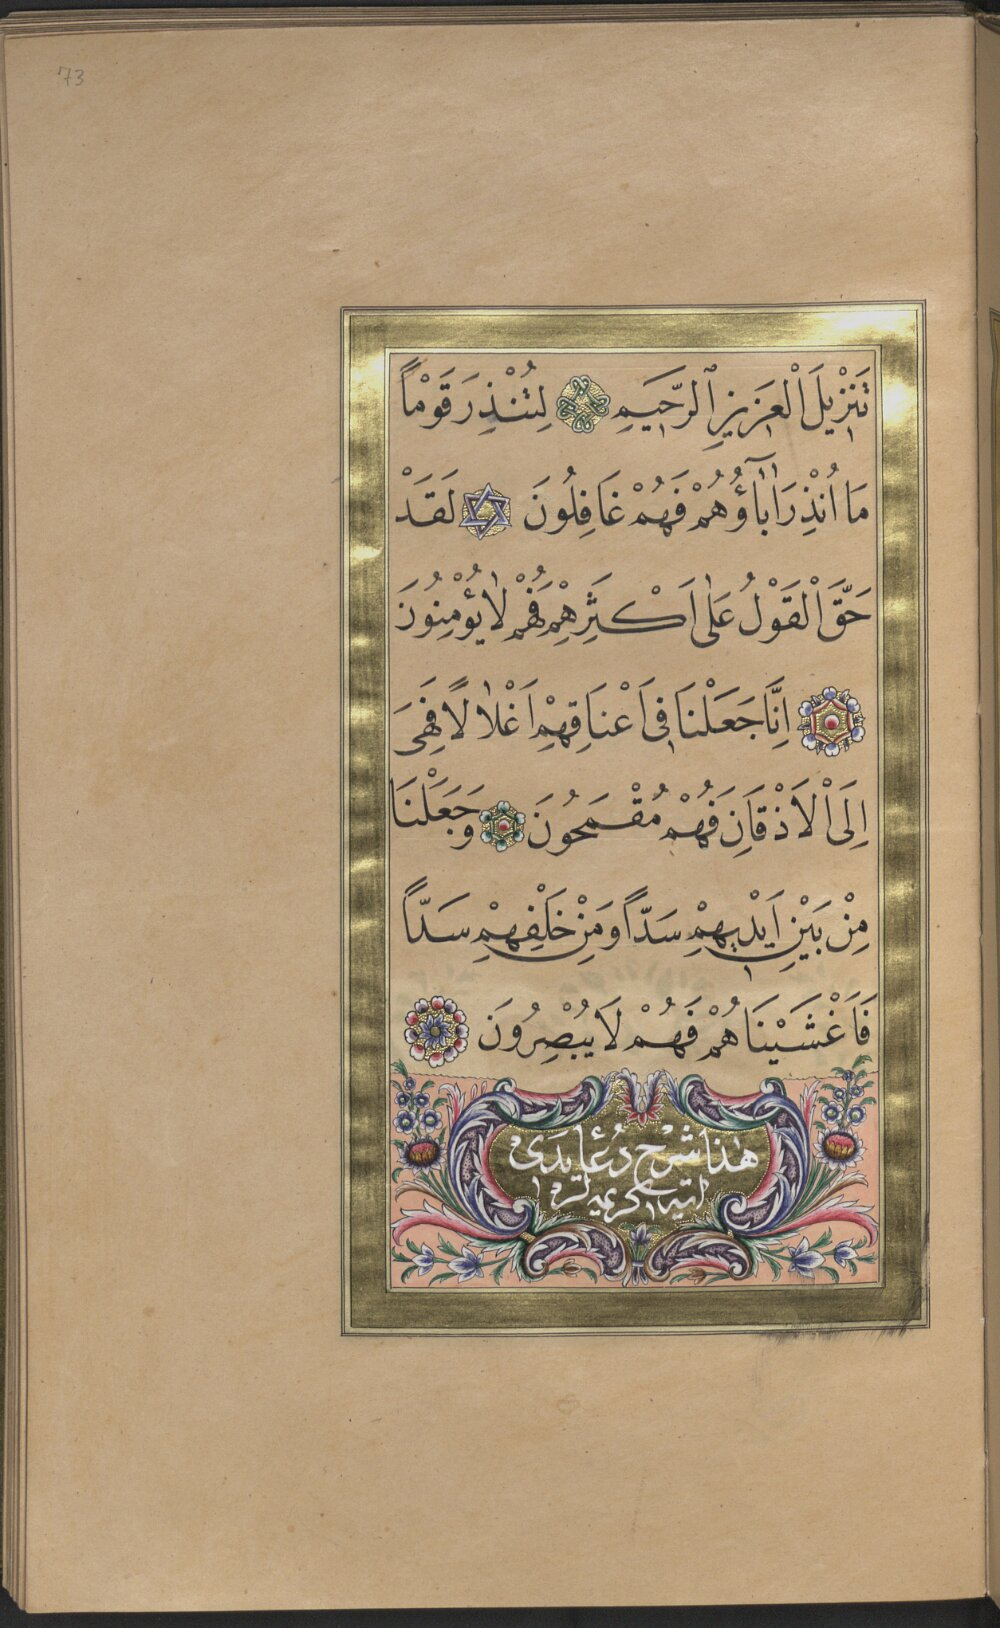 73
تَنْزِيلَ الْعَزِيزِ الرَّحِيمِ لِتُنْذِرَ قَوْمًا
مَا اُنْذِرَ اٰبَاۤؤُهُمْ فَهُمْ غَافِلُونَ لَقَدْ
حَقَّ الْقَوْلُ عَلٰى اَكْثَرِهِمْ فَهُمْ لَا يُؤْمِنُونَ
اِنَّا جَعَلْنَا فِى اَعْنَاقِهِمْ اَغْلَالًا فَهِىَ
اِلَى الْاَذْقَانِ فَهُمْ مُقْمَحُونَ وَجَعَلْنَا
مِنْ بَيْنِ اَيْدِيهِمْ سَدًّا وَمِنْ خَلْفِهِمْ سَدًّا
فَاَغْشَيْنَاهُمْ فَهُمْ لَا يُبْصِرُونَ
هٰذَا شَرْحِ دُعَا يَدِى